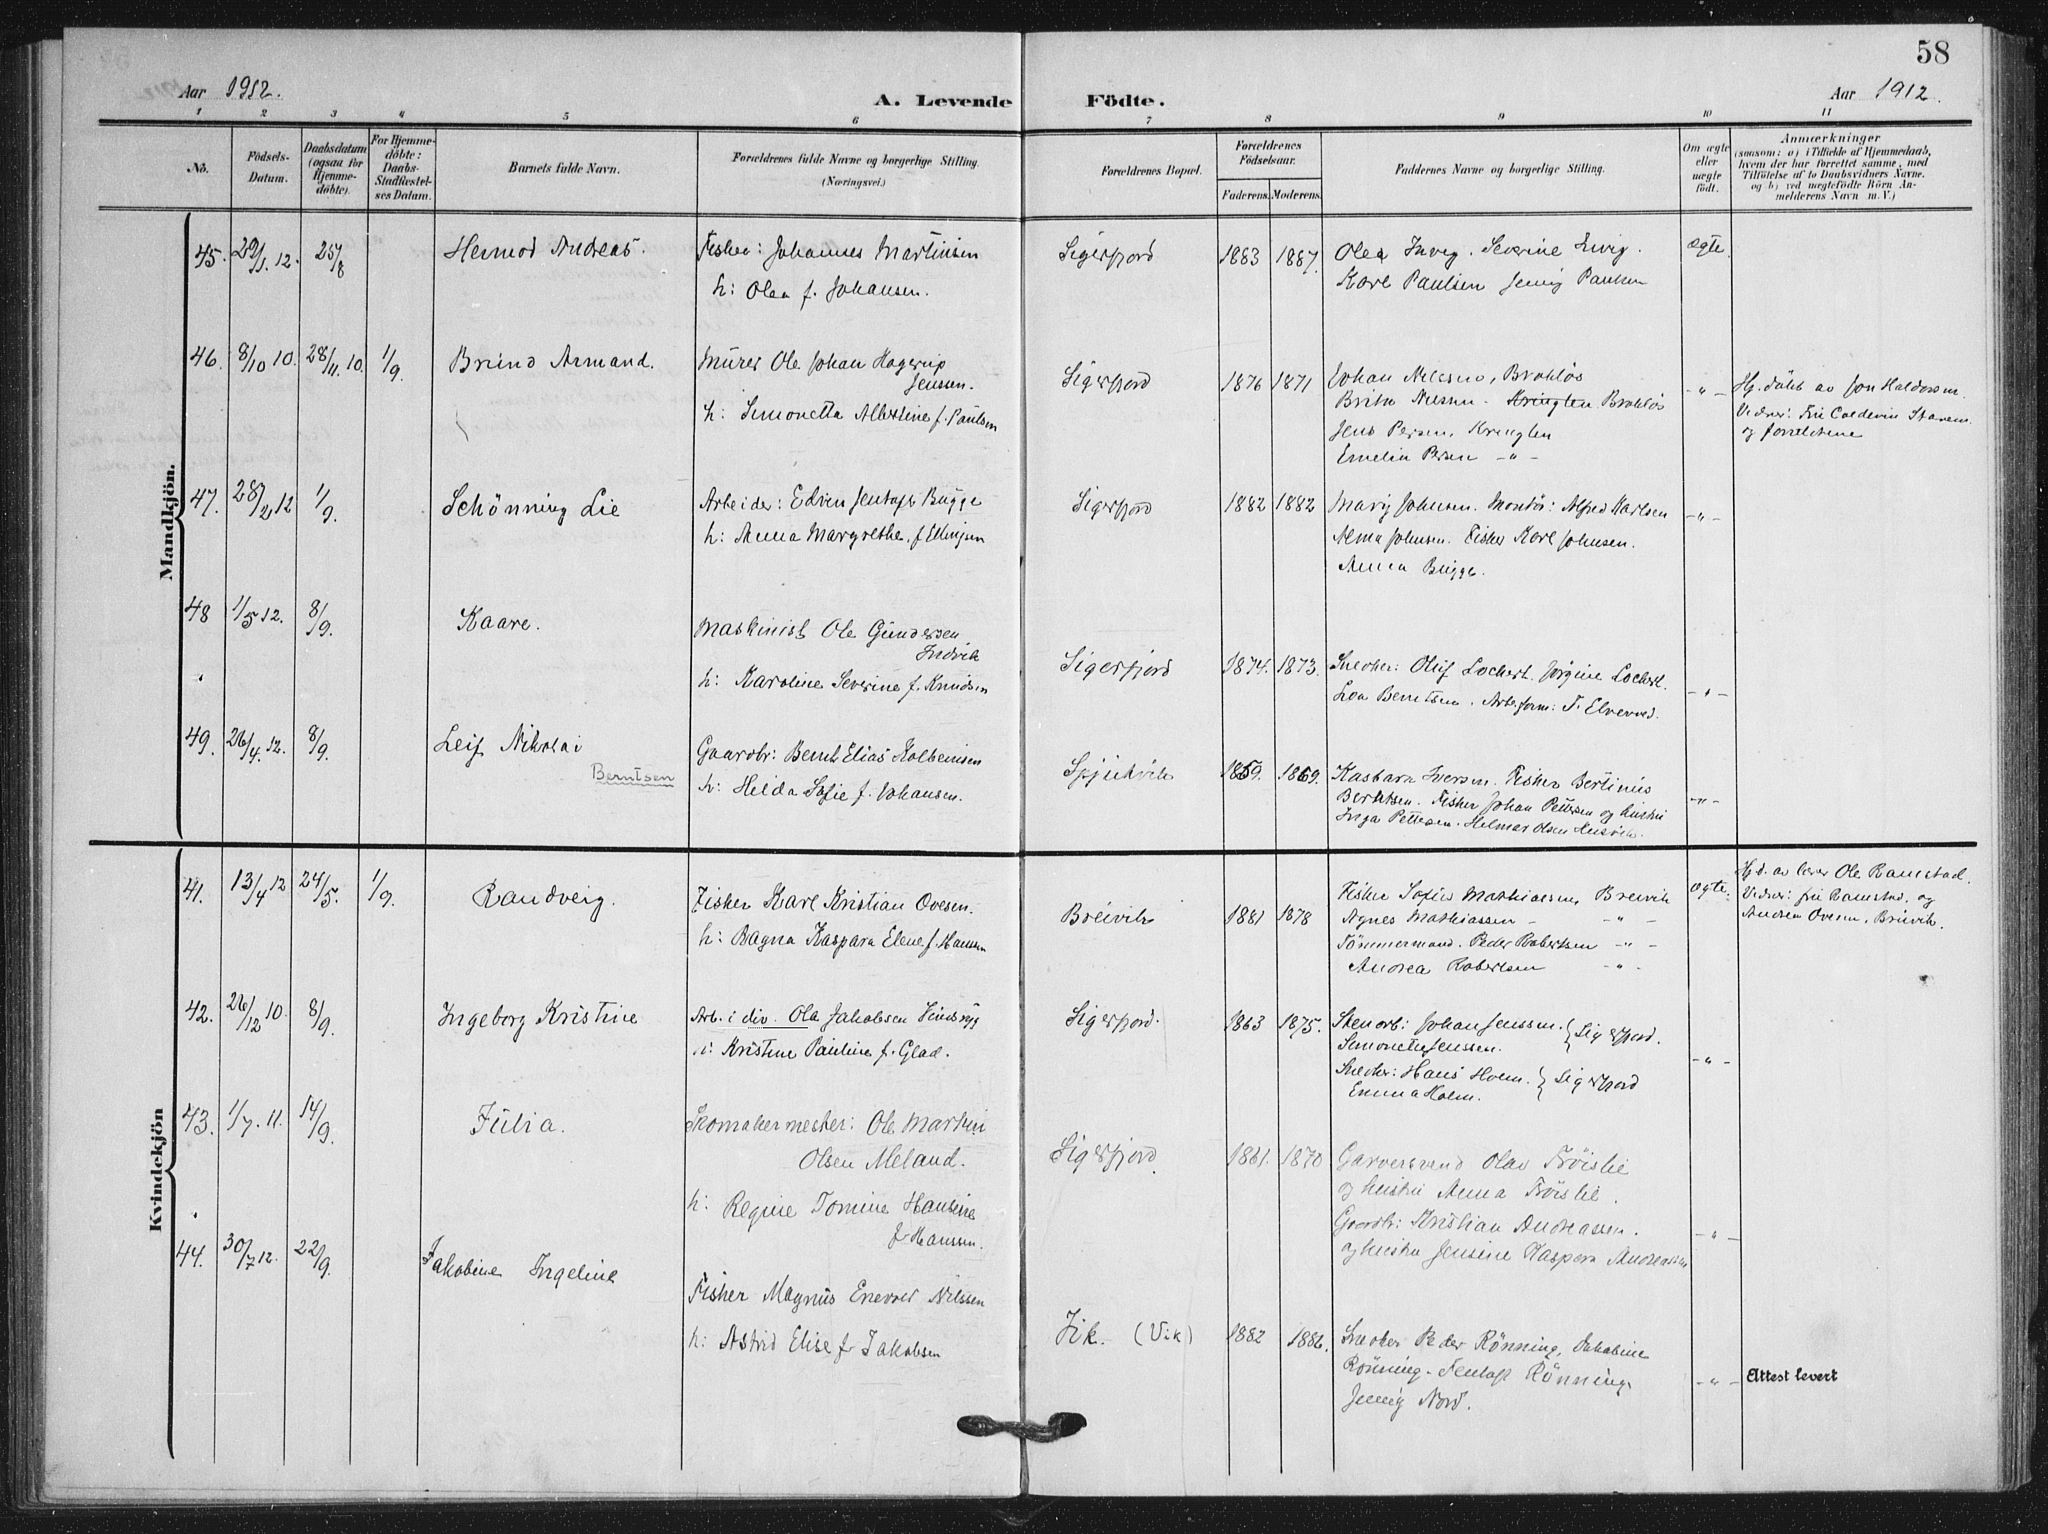 58
Aar 1912.
A. Levende
Födte.
Aar 1912.
1 2 3 4 5 6 7 8 9 10 11
No.
Födsels-Datum.
Daabsdatum (ogsaa for Hjemme-döbte).
For Hjemme-döbte: Daabs-Stadfæstel-ses Datum.
Barnets fulde Navn.
Forældrenes fulde Navne og borgerlige Stilling.
(Næringsvei.)
Forældrenes Bopæl.
Forældrenes Födselsaar.
Faderens. Moderens.
Faddernes Navne og borgerlige Stilling.
Om ægte eller uægte födt.
Anmærkninger
(saasom: a) i Tilfælde af Hjemmedaab,
hvem der har forrettet samme, med
Tilföielse af to Daabsvidners Navne.
og b) ved uegtefödte Börn An-
melderens Navn m. V.)
Mandkjön.
45. 29/1. 12. 25/8 Hermod Andreas. Fisker: Johannes Martinsen
h: Olea f. Johansen.
Sigerfjord 1883 1887.
Karl Paulsen Jenny Paulsen
ægte
46. 8/10 10. 28/11. 10. 1/9. Brund Armand. Murer Ole Johan Hagerup
Jenssen.
h: Simonetta Albertine f. Paulsen
Sigerfjord 1876 1871
Johan Nilssen, Brokløs
Brita Nilssen. Kringlen Brokløs
Jens Persen, Kringlen
Emelia Persen -"-
-"-
Hj. döbt av Jon Haldorsen.
og forældrene
47. 28/2 12 1/9. Schönning Lie Arbeider: Edvin Jentoft Bugge
h: Anna Margrethe, f. Ellingsen
Sigerfjord 1882 1882
Mary Johnsen. Montör: Alfred Karlsen
Alma Johnsen. Fisker Karl Johnsen.
Anna Bugge.
-"-
48 1/5 12. 8/9. Kaare. Maskinist Ole Gundersen
Indvik
h: Karoline Severine f. Knudsen
Sigerfjord 1874. 1873.
Snedker: Oluf Lochert. Jörgine Lochert.
Lea Berntsen. Arbeiderform: T. Elvevold.
-"-
49. 26/4. 12. 8/9. Leif Nikolai
Berntsen
Gaardbr: Bernt Elias Kolbeinsen
h: Helda Sofie f. Johansen.
1859. 1869.
Kasbara Iversen. Fisker Bertinius
Berntsen. Fisker Johan Pettersen og hustru
Inga Pettersen. Helmer Olsen
-"-
Kvindekjön
41. 13/4 12 24/5. 1/9. Randveig. Fisker Karl Kristian Ovesen.
h: Ragna Kaspara Elene f. Hansen
Breivik 1881 1878
Fisker Sofus Mathiassen, Breivik
Agnes Mathiassen - -"-
Tömmermand. Peder Robertsen -"-
Andrea Robertsen -"-
ægte.
Hjd. av lærer Ole Ramstad.
Vidner: fru Ramstad, og
Andrea Ovesen, Breivik.
42. 26/12 10. 8/9. Ingeborg Kristine Arb. i div. Ola Jakobsen
h: Kristine Pauline f. Glad.
Sigerfjord. 1863 1875.
Stenarb: Johan Jenssen. } Sigerfjord.
Simonetta Jenssen.
Snedker: Hans Holm. } Sigerfjord
Emma Holm.
-"-
43. 1/7. 11. 14/9. Julia. Skomakermester: Ole Martin
Olsen Meland.
h: Regine Tomine Hansine
f. Hanssen.
Sigerfjord. 1861. 1870
Garversvend Olav Fröislie
og hustru Anna Fröislie.
Gaardbr: Kristian Andreassen.
og hustru Jensine Kaspara Andreassen
-"-
44. 30/7 12. 22/9. Jakobine Ingeline
Fisker Magnus Enevold Nilssen
h: Astrid Elise f. Jakobsen
Jik. (Vik) 1882 1886.
Snedker Peder Rönning, Jakobine
Rönning. Jentoft Rönning.
Jenny Nord.
-"-
Attest levert